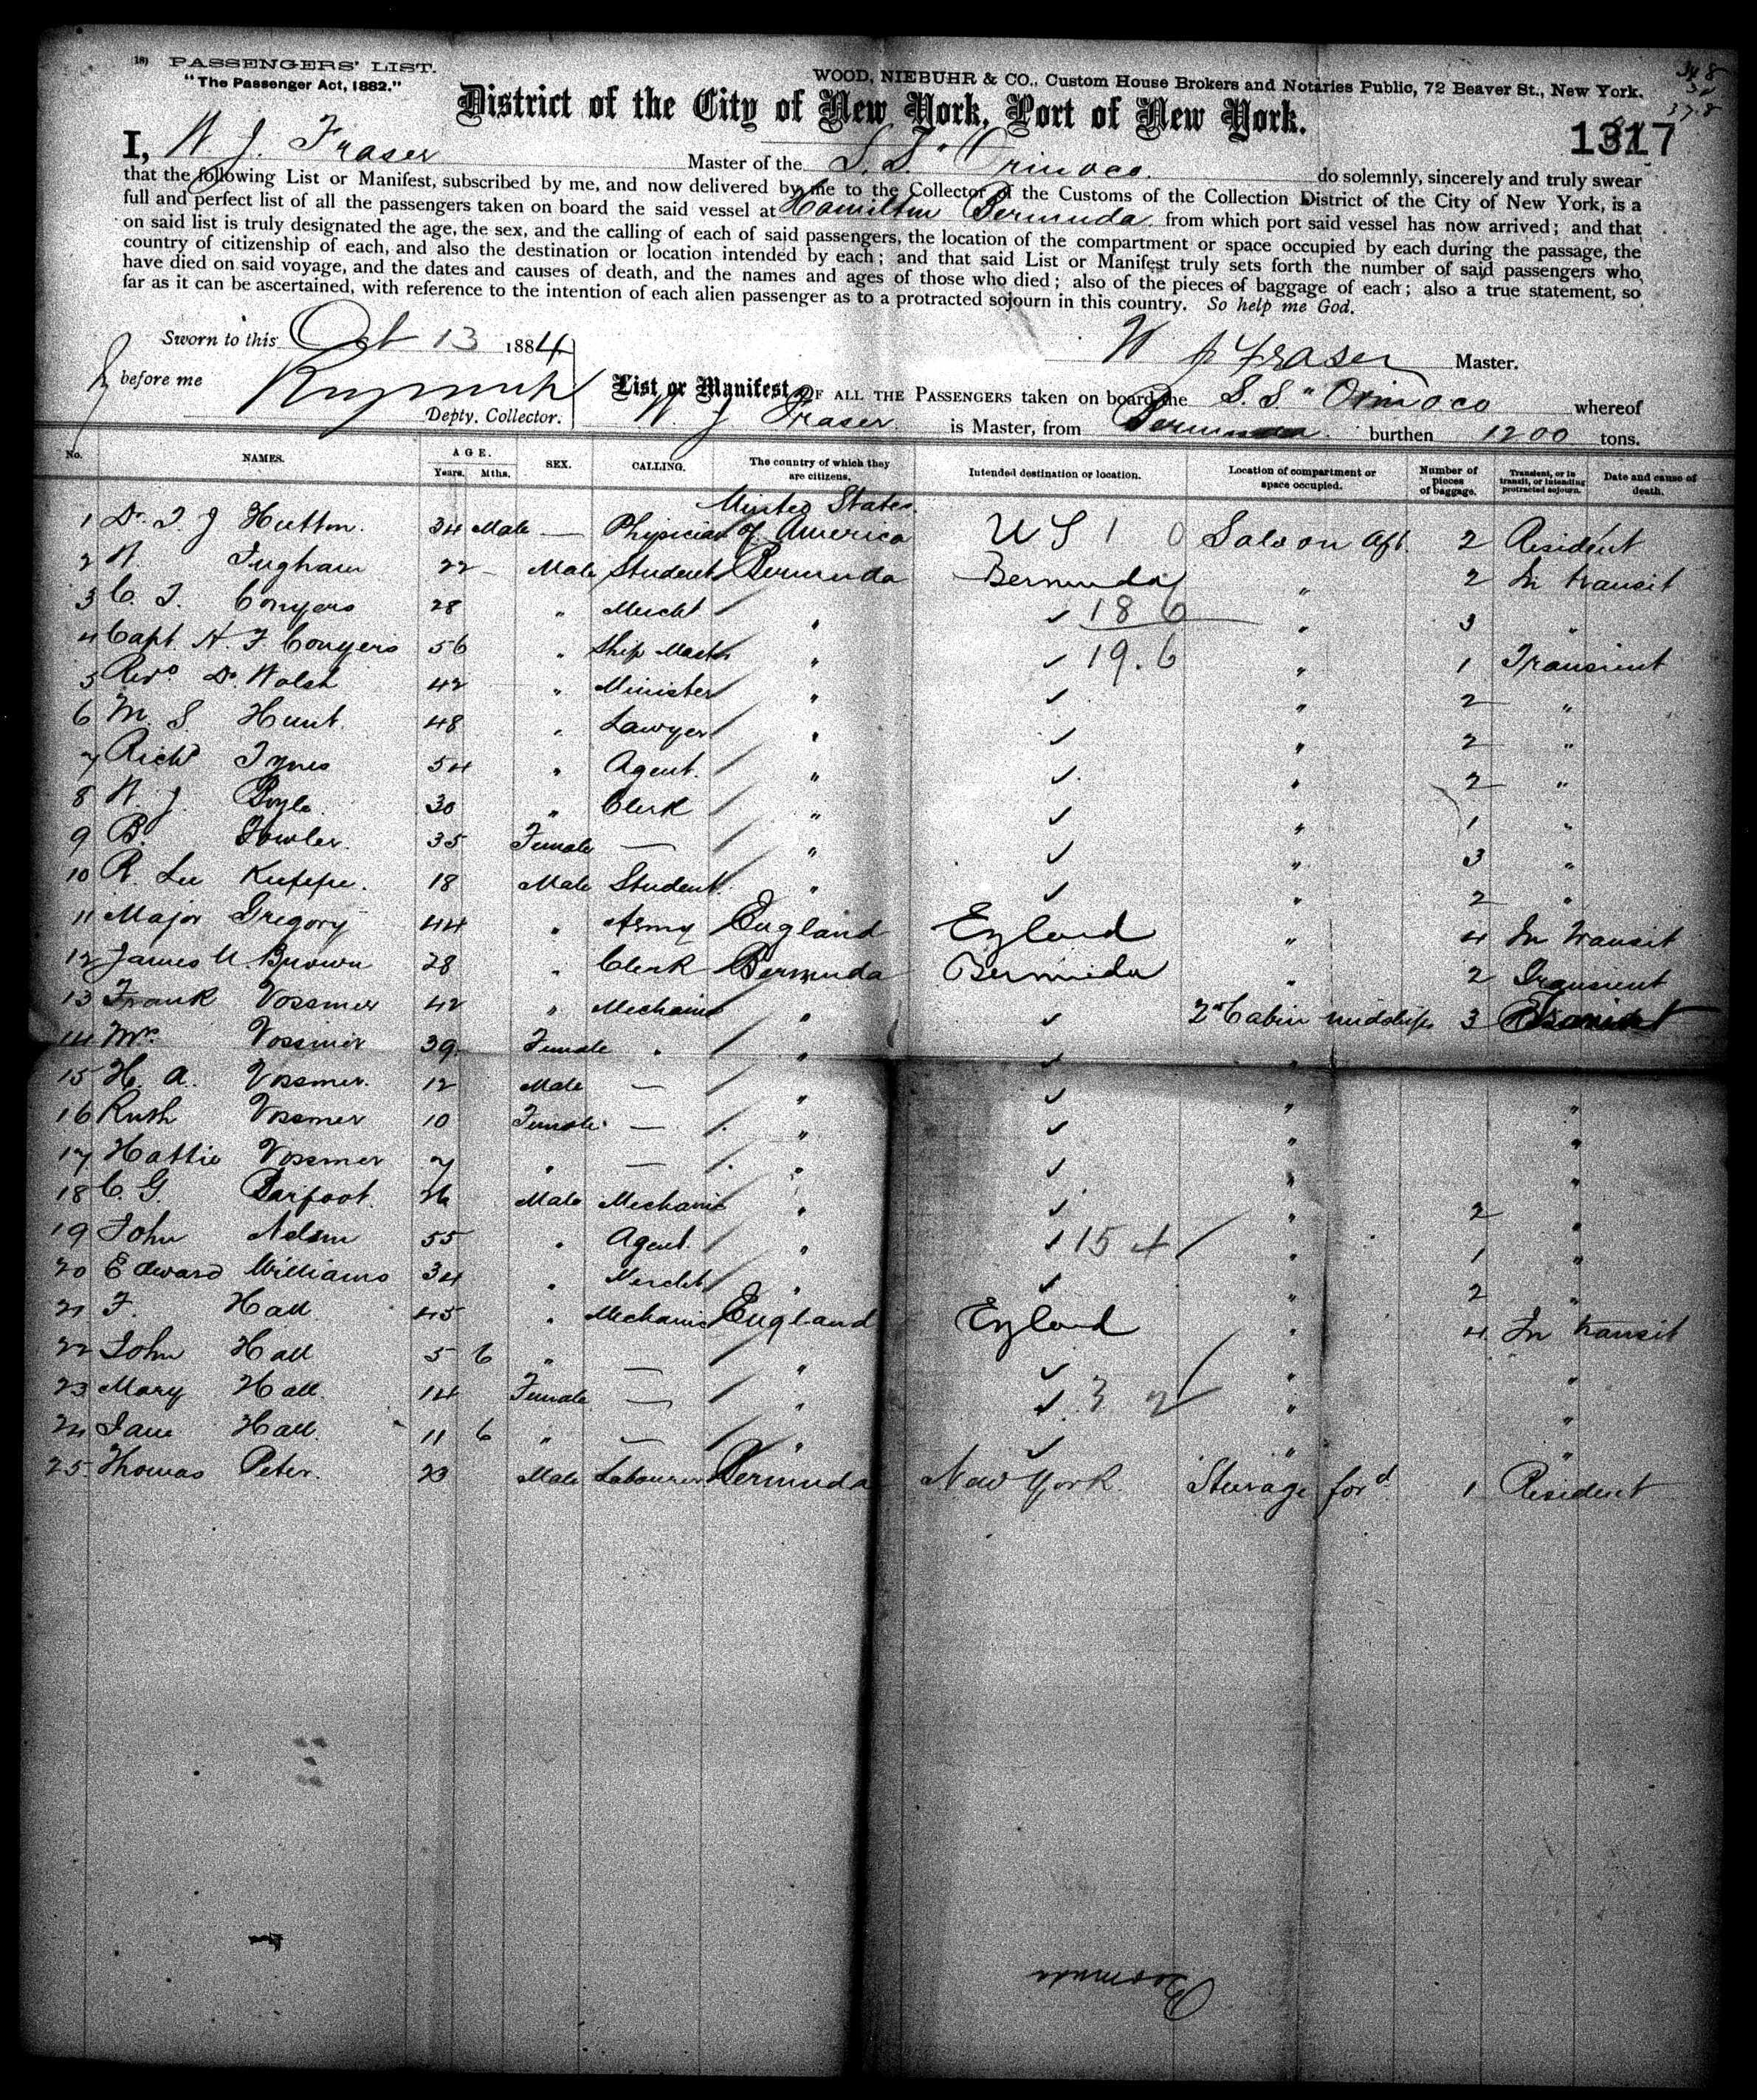 18) PASSENGERS' LIST.
"The Passenger Act, 1882."
WOOD, NIEBUHR & CO., Custom House Brokers and Notaries Public, 72 Beaver St., New York.
District of the City of New York, Port of New York.
1317
I, W. J. Fraser Master of the S.S. "Orinoco. do solemnly, sincerely and truly swear
that the following List or Manifest, subscribed by me, and now delivered by me to the Collector of the Customs of the Collection District of the City of New York, is a
full and perfect list of all the passengers taken on board the said vessel at Hamilton Bermuda from which port said vessel has now arrived; and that
on said list is truly designated the age, the sex, and the calling of each of said passengers, the location of the compartment or space occupied by each during the passage, the
country of citizenship of each, and also the destination or location intended by each; and that said List or Manifest truly sets forth the number of said passengers who
have died on said voyage, and the dates and causes of death, and the names and ages of those who died; also of the pieces of baggage of each; also a true statement, so
far as it can be ascertained, with reference to the intention of each alien passenger as to a protracted sojourn in this country. So help me God.
Sworn to this Oct 13 1884
W J Fraser Master.
before me
Depty. Collector.
List or Manifest OF ALL THE PASSENGERS taken on board the S.S. "Orinoco whereof
W. J Fraser is Master, from Bermuda burthen 1200 tons.
No. NAMES. AGE. Years. Mths. SEX. CALLING. The country of which they are citizens. Intended destination or location. Location of compartment or space occupied. Number of pieces of baggage. Transient, or in transit, or intending protracted sojourn. Date and cause of death.
1 Dr. T J Hutton. 34 Male — Physician United States of America U S 1 0 Saloon Aft. 2 Resident
2 W Ingham 22 Male Student Bermuda Bermuda " 2 In transit
3 C. T. Conyers 28 " Mercht " ✓ 18 6 " 3 "
4 Capt. H F Conyers 56 " Ship Mastr " ✓ 19.6 " 1 Transient
5 Revd Dr Walsh 42 " Minister " ✓ " 2 "
6 M. S Hunt. 48 " Lawyer " ✓ " 2 "
7 Richd Tynes 54 " Agent. " ✓ " 2 "
8 W. J. Boyle 30 " Clerk " ✓ " 1 "
9 B. Fowler. 35 Female — " ✓ " 3 "
10 R. Lee 18 Male Student. " ✓ " 2 "
11 Major Gregory 44 " Army England England " 4 In transit
12 James Brown 28 " Clerk Bermuda Bermuda " 2 Transient
13 Frank Vossmer 42 " Mechanic " ✓ 2nd Cabin midships 3
14 Mrs Vossmer 39 Female " " ✓ "
15 H. A. Vossmer. 12 Male — " ✓ " "
16 Ruth Vossmer 10 Female — " ✓ " "
17 Hattie Vossmer 7 " — " ✓ " "
18 C. G. Barfoot. 26 Male Mechanic " ✓ " 2 "
19 John Nelson 55 " Agent. " ✓ 15 4 " 1 "
20 Edward Williams 34 " Mercht " ✓ " 2 "
21 F. Hall 45 " Mechanic England England " 4 In transit
22 John Hall 5 6 " — " ✓ " "
23 Mary Hall. 14 Female — " ✓ 3 2 " "
24 Jane Hall. 11 6 " — " ✓ " "
25 Thomas Peter. 23 Male Labourer Bermuda New York. Steerage ford 1 Resident
Bermuda